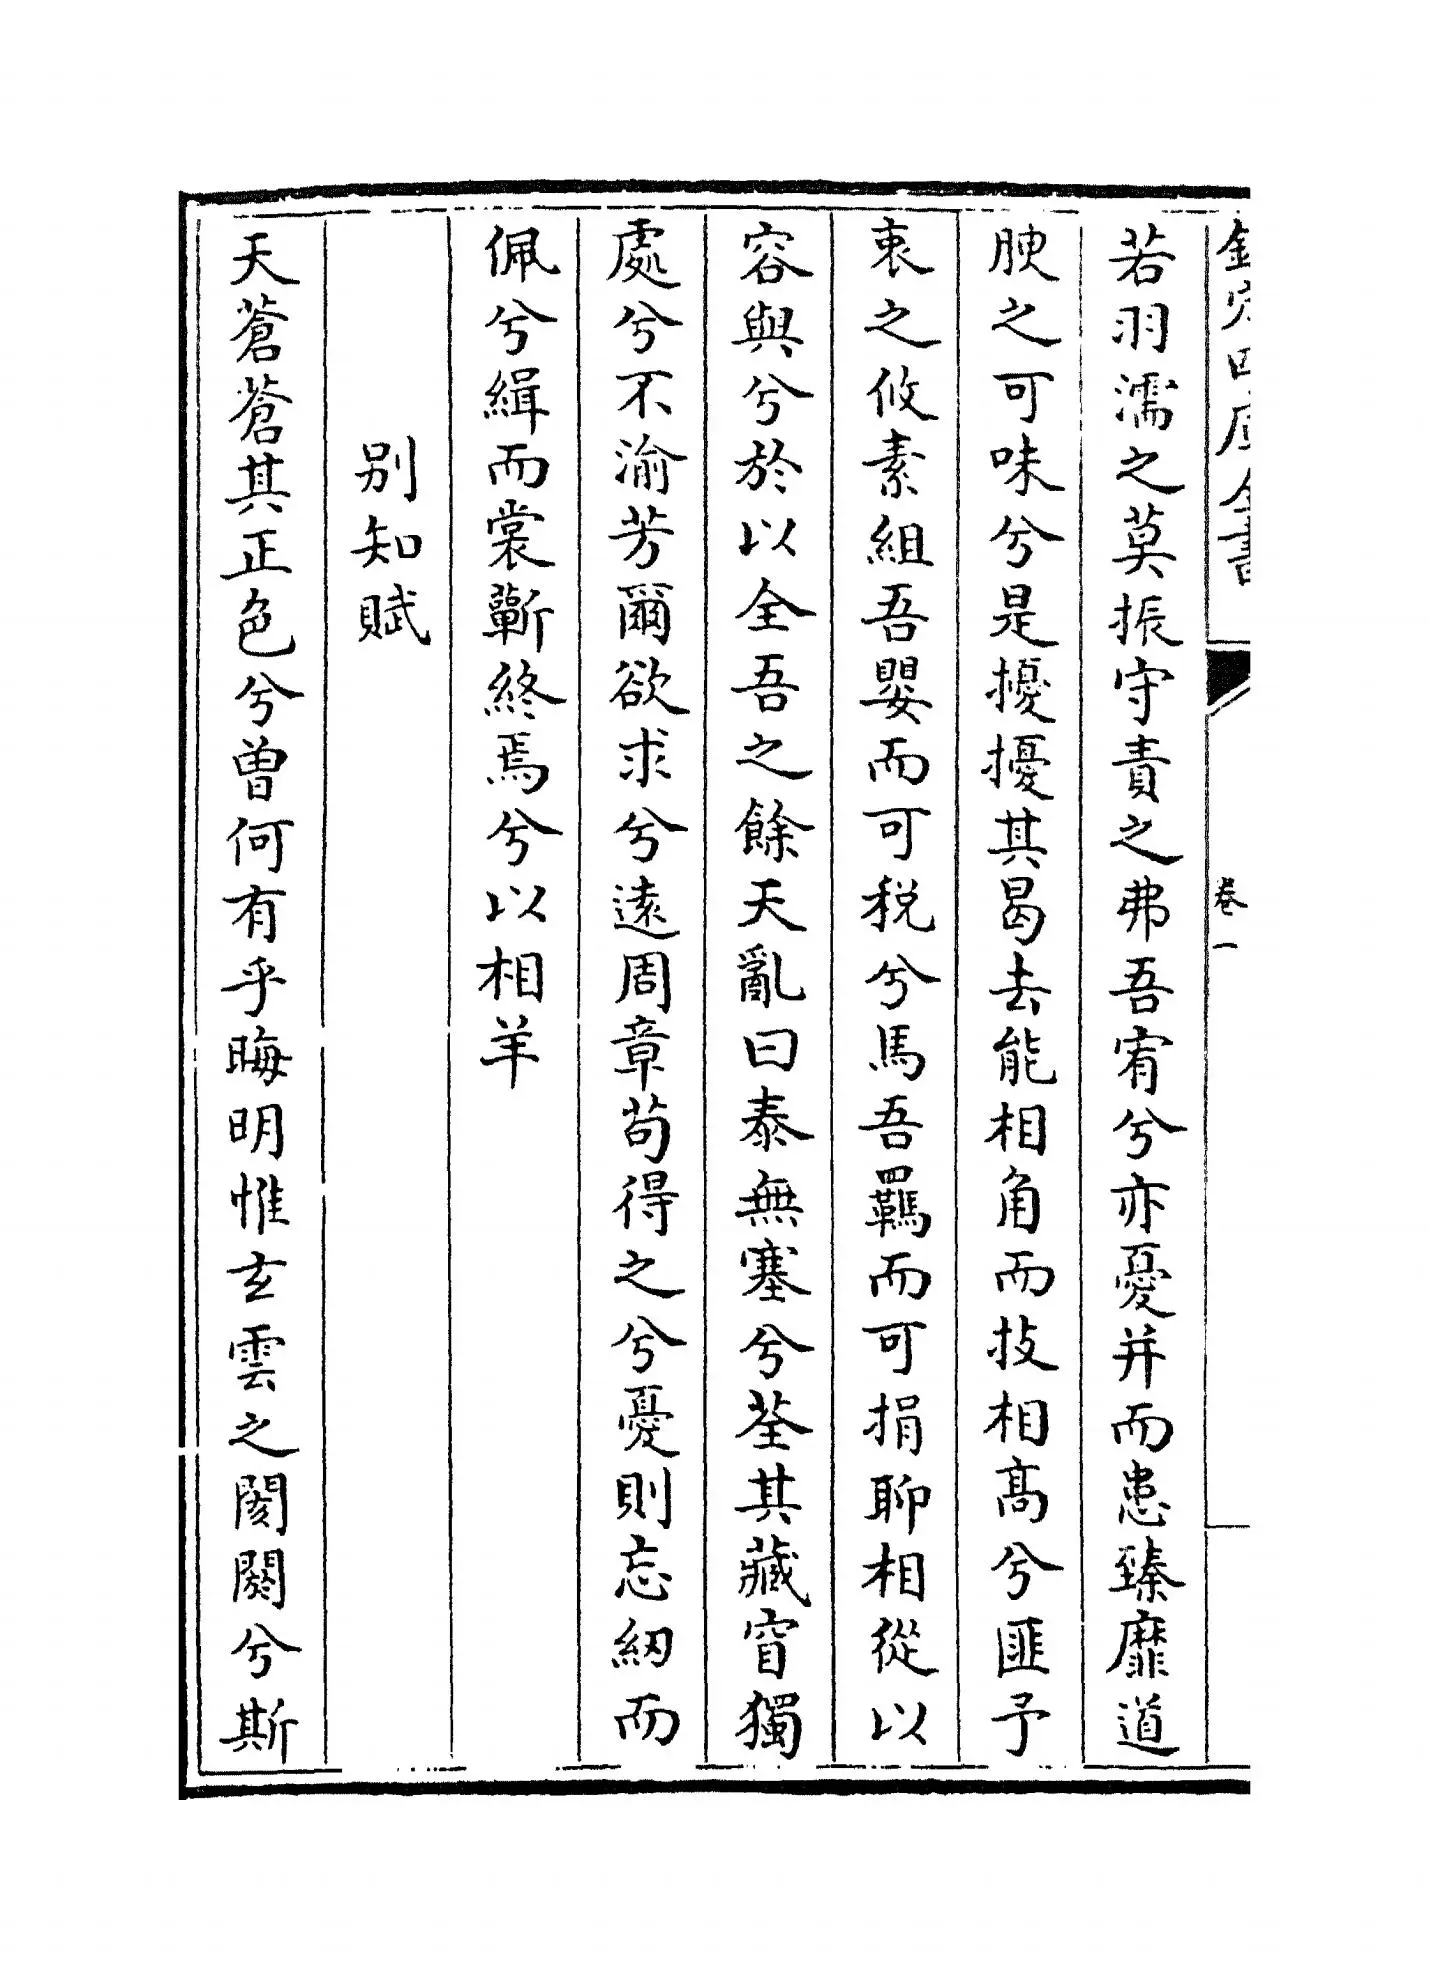 欽定四庫全書
卷一
若羽濡之莫振守責之弗吾宥兮亦憂并而患臻靡道
腴之可味兮是擾擾其曷去能相角而技相高兮匪予
衷之攸素組吾嬰而可税兮馬吾羈而可捐聊相從以
容與兮於以全吾之餘天亂曰泰無塞兮荃其藏窅獨
處兮不渝芳爾欲求兮逺周章茍得之兮憂則忘紉而
佩兮緝而裳蘄終焉兮以相羊
别知賦
天蒼蒼其正色兮曽何有乎晦明惟玄雲之閡閼兮斯